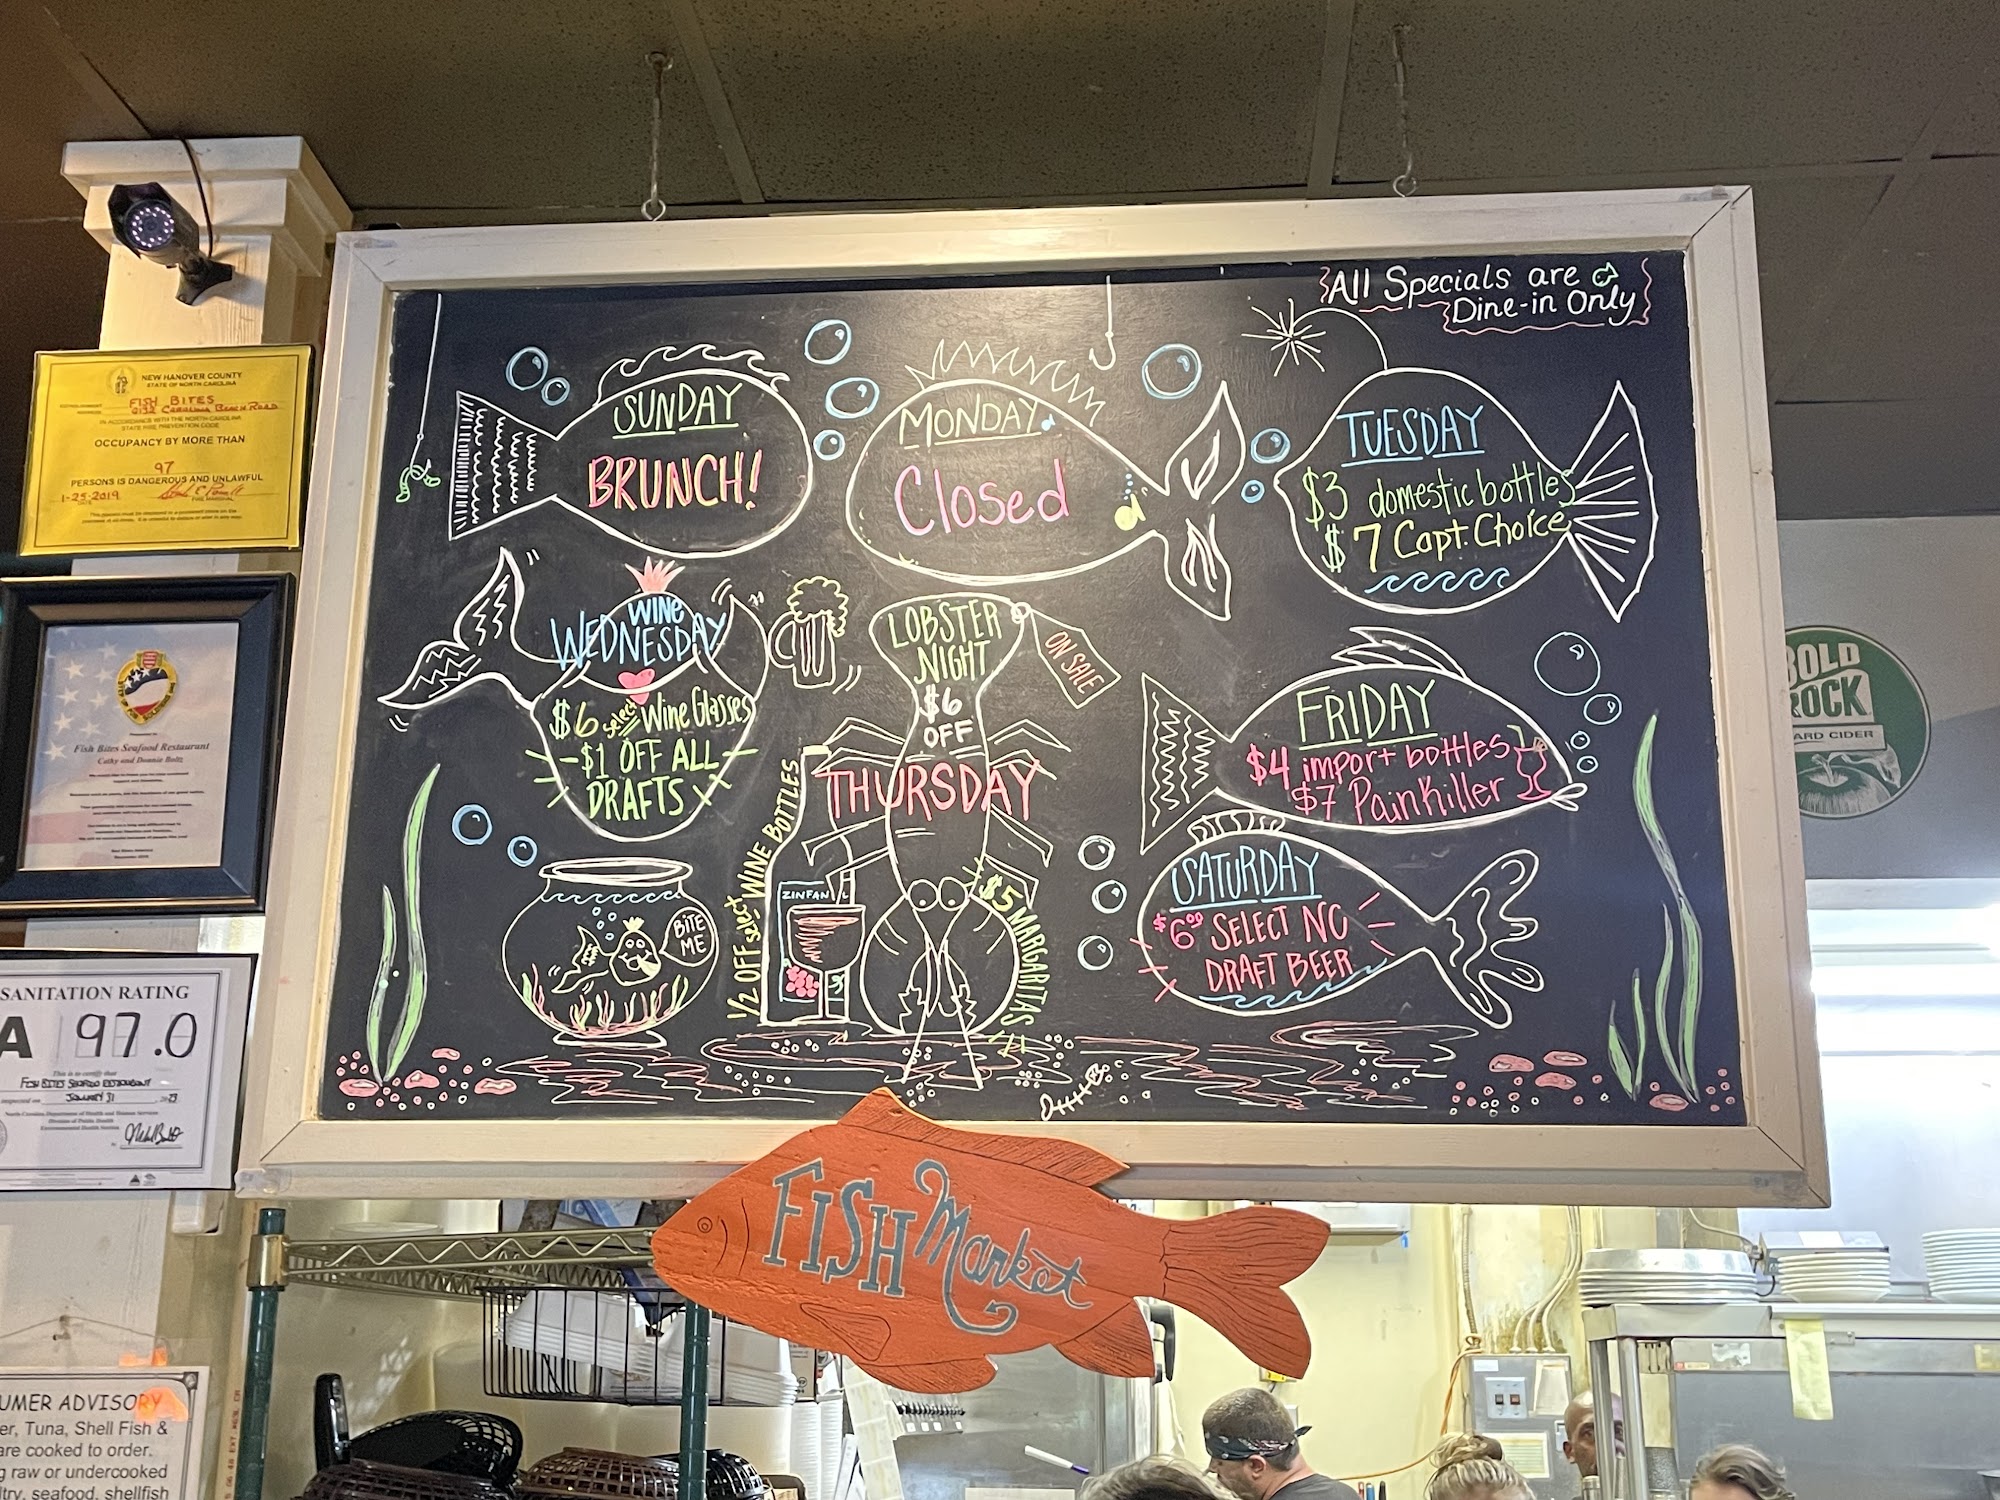 All Specials are
Dine-in Only
SUNDAY
BRUNCH!
MONDAY
Closed
TUESDAY
$3 domestic bottles
$7 Capt. Choice
WINE
WEDNESDAY
$6 select Wine Glasses
-$1 OFF ALL
DRAFTS
LOBSTER
NIGHT
$6
OFF
ON SALE
THURSDAY
1/2 OFF select WINE BOTTLES
ZINFAN
$5 MARGARITAS
FRIDAY
$4 import bottles
$7 Painkiller
SATURDAY
$6.00 SELECT NC
DRAFT BEER
BITE
ME
FISH Market
NEW HANOVER COUNTY
STATE OF NORTH CAROLINA
FISH BITES
6132 CAROLINA BEACH ROAD
IN ACCORDANCE WITH THE NORTH CAROLINA
STATE FIRE PREVENTION CODE
OCCUPANCY BY MORE THAN
97
PERSONS IS DANGEROUS AND UNLAWFUL
1-25-2019
FIRE MARSHAL
Fish Bites Seafood Restaurant
Cathy and Donnie Boltz
SANITATION RATING
A 97.0
This is to certify that
FISH BITES SEAFOOD RESTAURANT
inspected on JANUARY 31
North Carolina Department of Health and Human Services
Division of Public Health
Environmental Health Section
UMER ADVISORY
er, Tuna, Shell Fish &
are cooked to order.
g raw or undercooked
ltry, seafood, shellfish
BOLD
ROCK
ARD CIDER